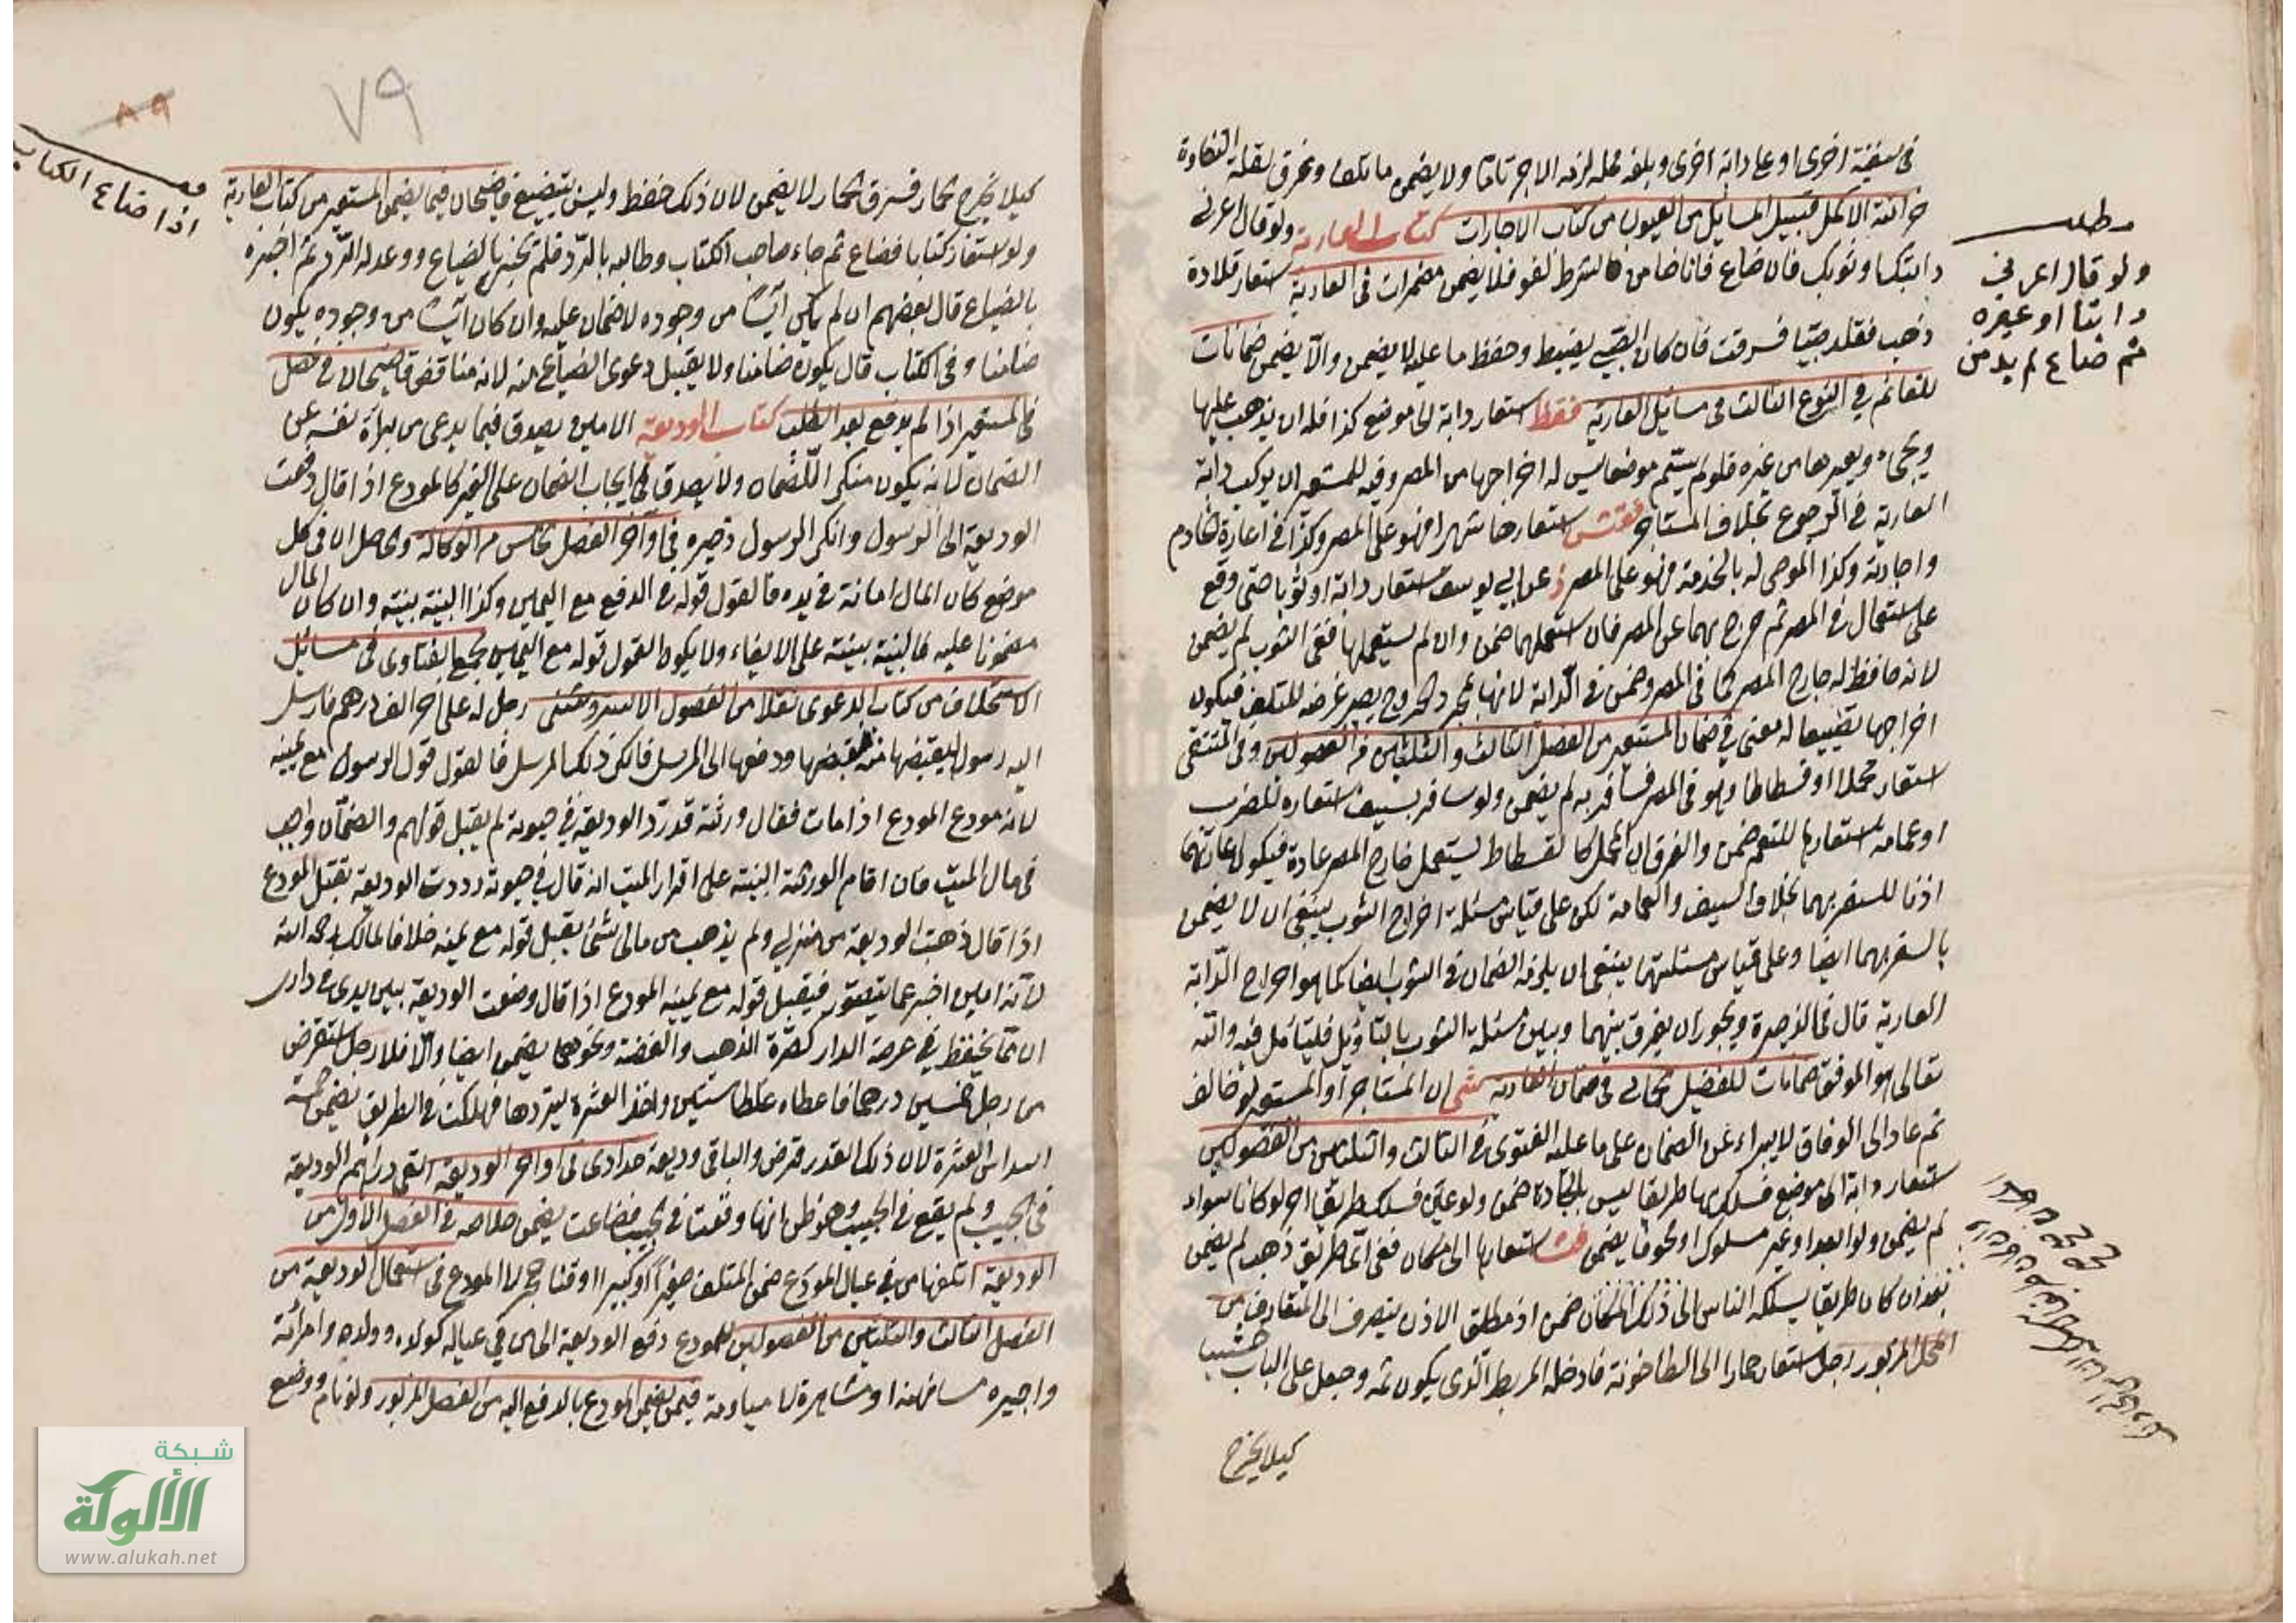 في سفينة اخرى او على دابة اخرى وبلغ محله لزمه الاجر تاما ولا يضمن ما تلف وغرق لقلة التفاوت
خزانة الاكمل قبيل المسائل من العيون من كتاب الاجارات كتاب العارية ولو قال اعرني
دابتك او ثوبك فان ضاع فانا ضامن الشرط لغو فلا يضمن مضمرات في العارية استعار قلادة
ذهب فقلد صبيا فسرقت فان كان الصبي يضبط وحفظ ما عليه لا يضمن والا يضمن ضمانات
للغانم في النوع الثالث في مسائل العارية فقط استعار دابة الى موضع كذا فله ان يذهب عليها
ويجيء ويعيرها من غيره فلو لم يسم موضعا ليس له اخراجها من المصر وفيه للمستعير ان يركب دابة
العارية في الرجوع بخلاف المستاجر استعارها شهرا فهو على المصر وكذا في اعارة خادم
واجارته وكذا الموصى له بالخدمة فهو على المصر ذ عن ابي يوسف استعار دابة او ثوبا حتى وقع
على استعمال في المصر ثم خرج بهما عن المصر فان استعملهما ضمن وان لم يستعملها ففي الثوب لم يضمن
لانه حافظ له خارج المصر كما في المصر وضمن في الدابة لانها بمجرد الخروج يصير عرضة للتلف فيكون
اخراجها تضييعا له معنى في ضمان المستعير من الفصل الثالث والثلثين من الفصولين وفي المنتقى
استعار محملا او فسطاطا وهو في المصر فسافر به لم يضمن ولو سافر بسيف استعاره للضرب
او عمامة استعارها للتعمم ضمن والفرق ان المحمل كالفسطاط يستعمل خارج المصر عادة فيكون اعارتهما
اذنا للسفر بهما بخلاف السيف والعمامة لكن على قياس مسئلة اخراج الثوب ينبغي ان لا يضمن
بالسفر بهما ايضا وعلى قياس مسئلتهما ينبغي ان يلزمه الضمان في الثوب ايضا كما هو اخراج الدابة
العارية قال في الذخيرة ويجوز ان يفرق بينهما وبين مسئلة الثوب بالتاويل فليتامل فيه والله
تعالى هو الموفق ضمانات للفضيل في ضمان العارية ان المستاجر او المستعير لو خالف
ثم عاد الى الوفاق لا يبراء عن الضمان على ما عليه الفتوى في الثالث والثلثين من الفصولين
استعار دابة الى موضع فسلك بها طريقا ليس بالجادة ضمن ولو عين فسلك طريقا اخر لو كانا سواء
لم يضمن ولو ابعد او غير مسلوك او مخوفا يضمن استعارها الى مكان ففي اي طريق ذهب لم يضمن
بعد ان كان طريقا يسلكه الناس الى ذلك المكان ضمن اذ مطلق الاذن ينصرف الى المتعارف من
المحل المزبور رجل استعار حمارا الى الطاحونة فادخله المربط الذي يكون ثمه وجعل على الباب خشبا
كيلا يخرج
مطلب
ولو قال اعرني
دابتا او غيره
ثم ضاع لم يضمن
٧٩
٨٩
اذا ضاع الكتاب
كيلا يخرج حمار فسرق الحمار لا يضمن لان ذلك حفظ وليس بتضييع قاضيخان فيما يضمن المستعير من كتاب العارية
ولو استعار كتابا فضاع ثم جاء صاحب الكتاب وطالبه بالرد فلم يخبر بالضياع ووعد له الرد ثم اخبره
بالضياع قال بعضهم ان لم يكن آئسا من وجوده لا ضمان عليه وان كان آئسا من وجوده يكون
ضامنا وفي الكتاب قال يكون ضامنا ولا يقبل دعوى الضياع منه لانه مناقض قاضيخان في فصل
في المستعير اذا لم يدفع بعد الطلب كتاب الوديعة الامين يصدق فيما يدعى من براة نفسه عن
الضمان لانه يكون منكر للضمان ولا يصدق في ايجاب الضمان على الغير كالمودع اذا قال دفعت
الوديعة الى الرسول وانكر الرسول ذخيره في اواخر الفصل الخامس من الوكالة والحاصل ان في كل
موضع كان المال امانة في يده فالقول قوله في الدفع مع اليمين وكذا البينة بينته وان كان المال
مضمونا عليه فالبينة بينته على الايفاء ولا يكون القول قوله مع اليمين مجمع الفتاوى في مسائل
الاستحلاف من كتاب الدعوى نقلا من الفصول الاستروشنى رجل له على اخر الف درهم فارسل
اليه رسولا ليقبضها منه فقبضها ودفعها الى المرسل فانكر ذلك المرسل فالقول قول الرسول مع يمينه
لانه مودع المودع اذا مات فقال ورثته قد رد الوديعة في حيوته لم يقبل قولهم والضمان واجب
في مال الميت فان اقام الورثة البينة على اقرار الميت انه قال في حيوته رددت الوديعة يقبل المودع
اذا قال ذهبت الوديعة من منزلي ولم يذهب من مالى شئ يقبل قوله مع يمينه خلافا لمالك رحمه الله
لانه امين اخبر عما يتصور فيقبل قوله مع يمينه المودع اذا قال وضعت الوديعة بين يدى في دارى
ان مما يحفظ في عرصة الدار كصرة الذهب والفضة ونحوهما يضمن ايضا والا فلا رجل استقرض
من رجل خمسين درهما فاعطاه غلطا ستين واخذ العشرة ليردها فهلكت في الطريق يضمن خمسة
اسداس العشرة لان ذلك القدر قرض والباقى وديعة حدادى في اواخر الوديعة القى دراهم الوديعة
في الجيب ولم يقع في الجيب وهو ظن انها وقعت في الجيب فضاعت يضمن خلاصه في الفصل الاول من
الوديعة اتلفها من في عيال المودع ضمن المتلف صغيرا او كبيرا او قنا لا المودع في استعمال الوديعة من
الفصل الثالث والثلثين من الفصولين للمودع دفع الوديعة الى من في عياله كولده وولده وامرأته
واجيره مسانهة او مشاهرة لا مياومة فيمن يضمن المودع بالدفع اليه من الفصل المزبور ولو نام ووضع
شبكة
الألوكة
www.alukah.net